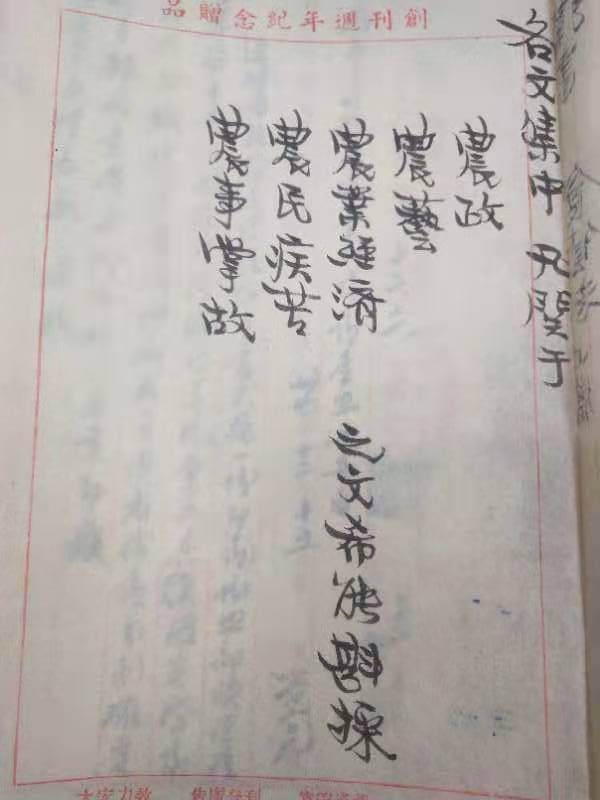 創刊週年紀念贈品
各文集中凡関于
農政
農藝
農業經濟
農民疾苦
農事掌故
之文希能斟採